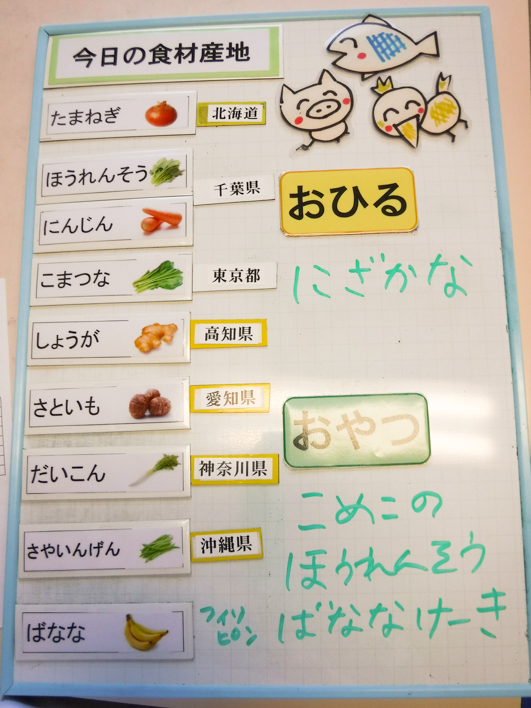 今日の食材産地
たまねぎ 北海道
ほうれんそう
千葉県
にんじん
こまつな 東京都
しょうが 高知県
さといも 愛知県
だいこん 神奈川県
さやいんげん 沖縄県
ばなな フィリピン
おひる
にざかな
おやつ
こめこの
ほうれんそう
ばななけーき